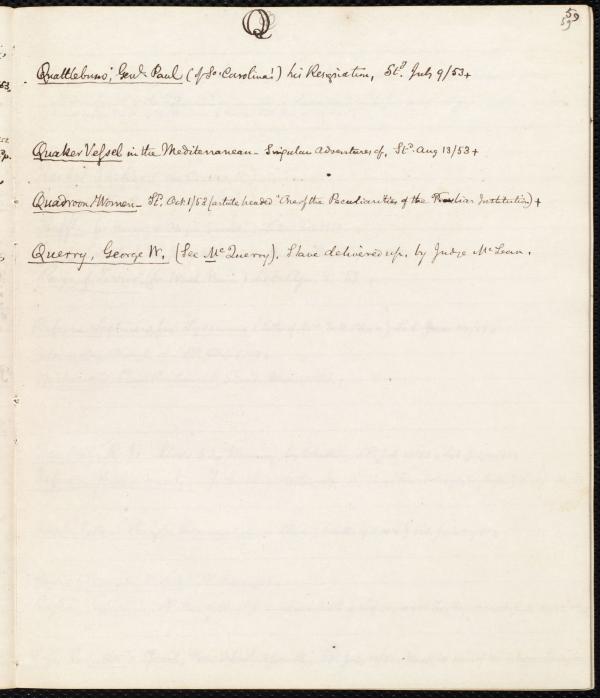 Q
59
59
Quattlebum, Genl. Paul (of So. Carolina!) his Resignation, Std. July 9/53+
Quaker Vessel in the Mediterranean - Singular Adventures of, Std. Aug 13/53+
Quadroon Women - St. Oct 1/53 (article headed "One of the Peculiarities of the Institution) +
Querry, George W. (See McQuerry). Slave delivered up, by Judge McLean.